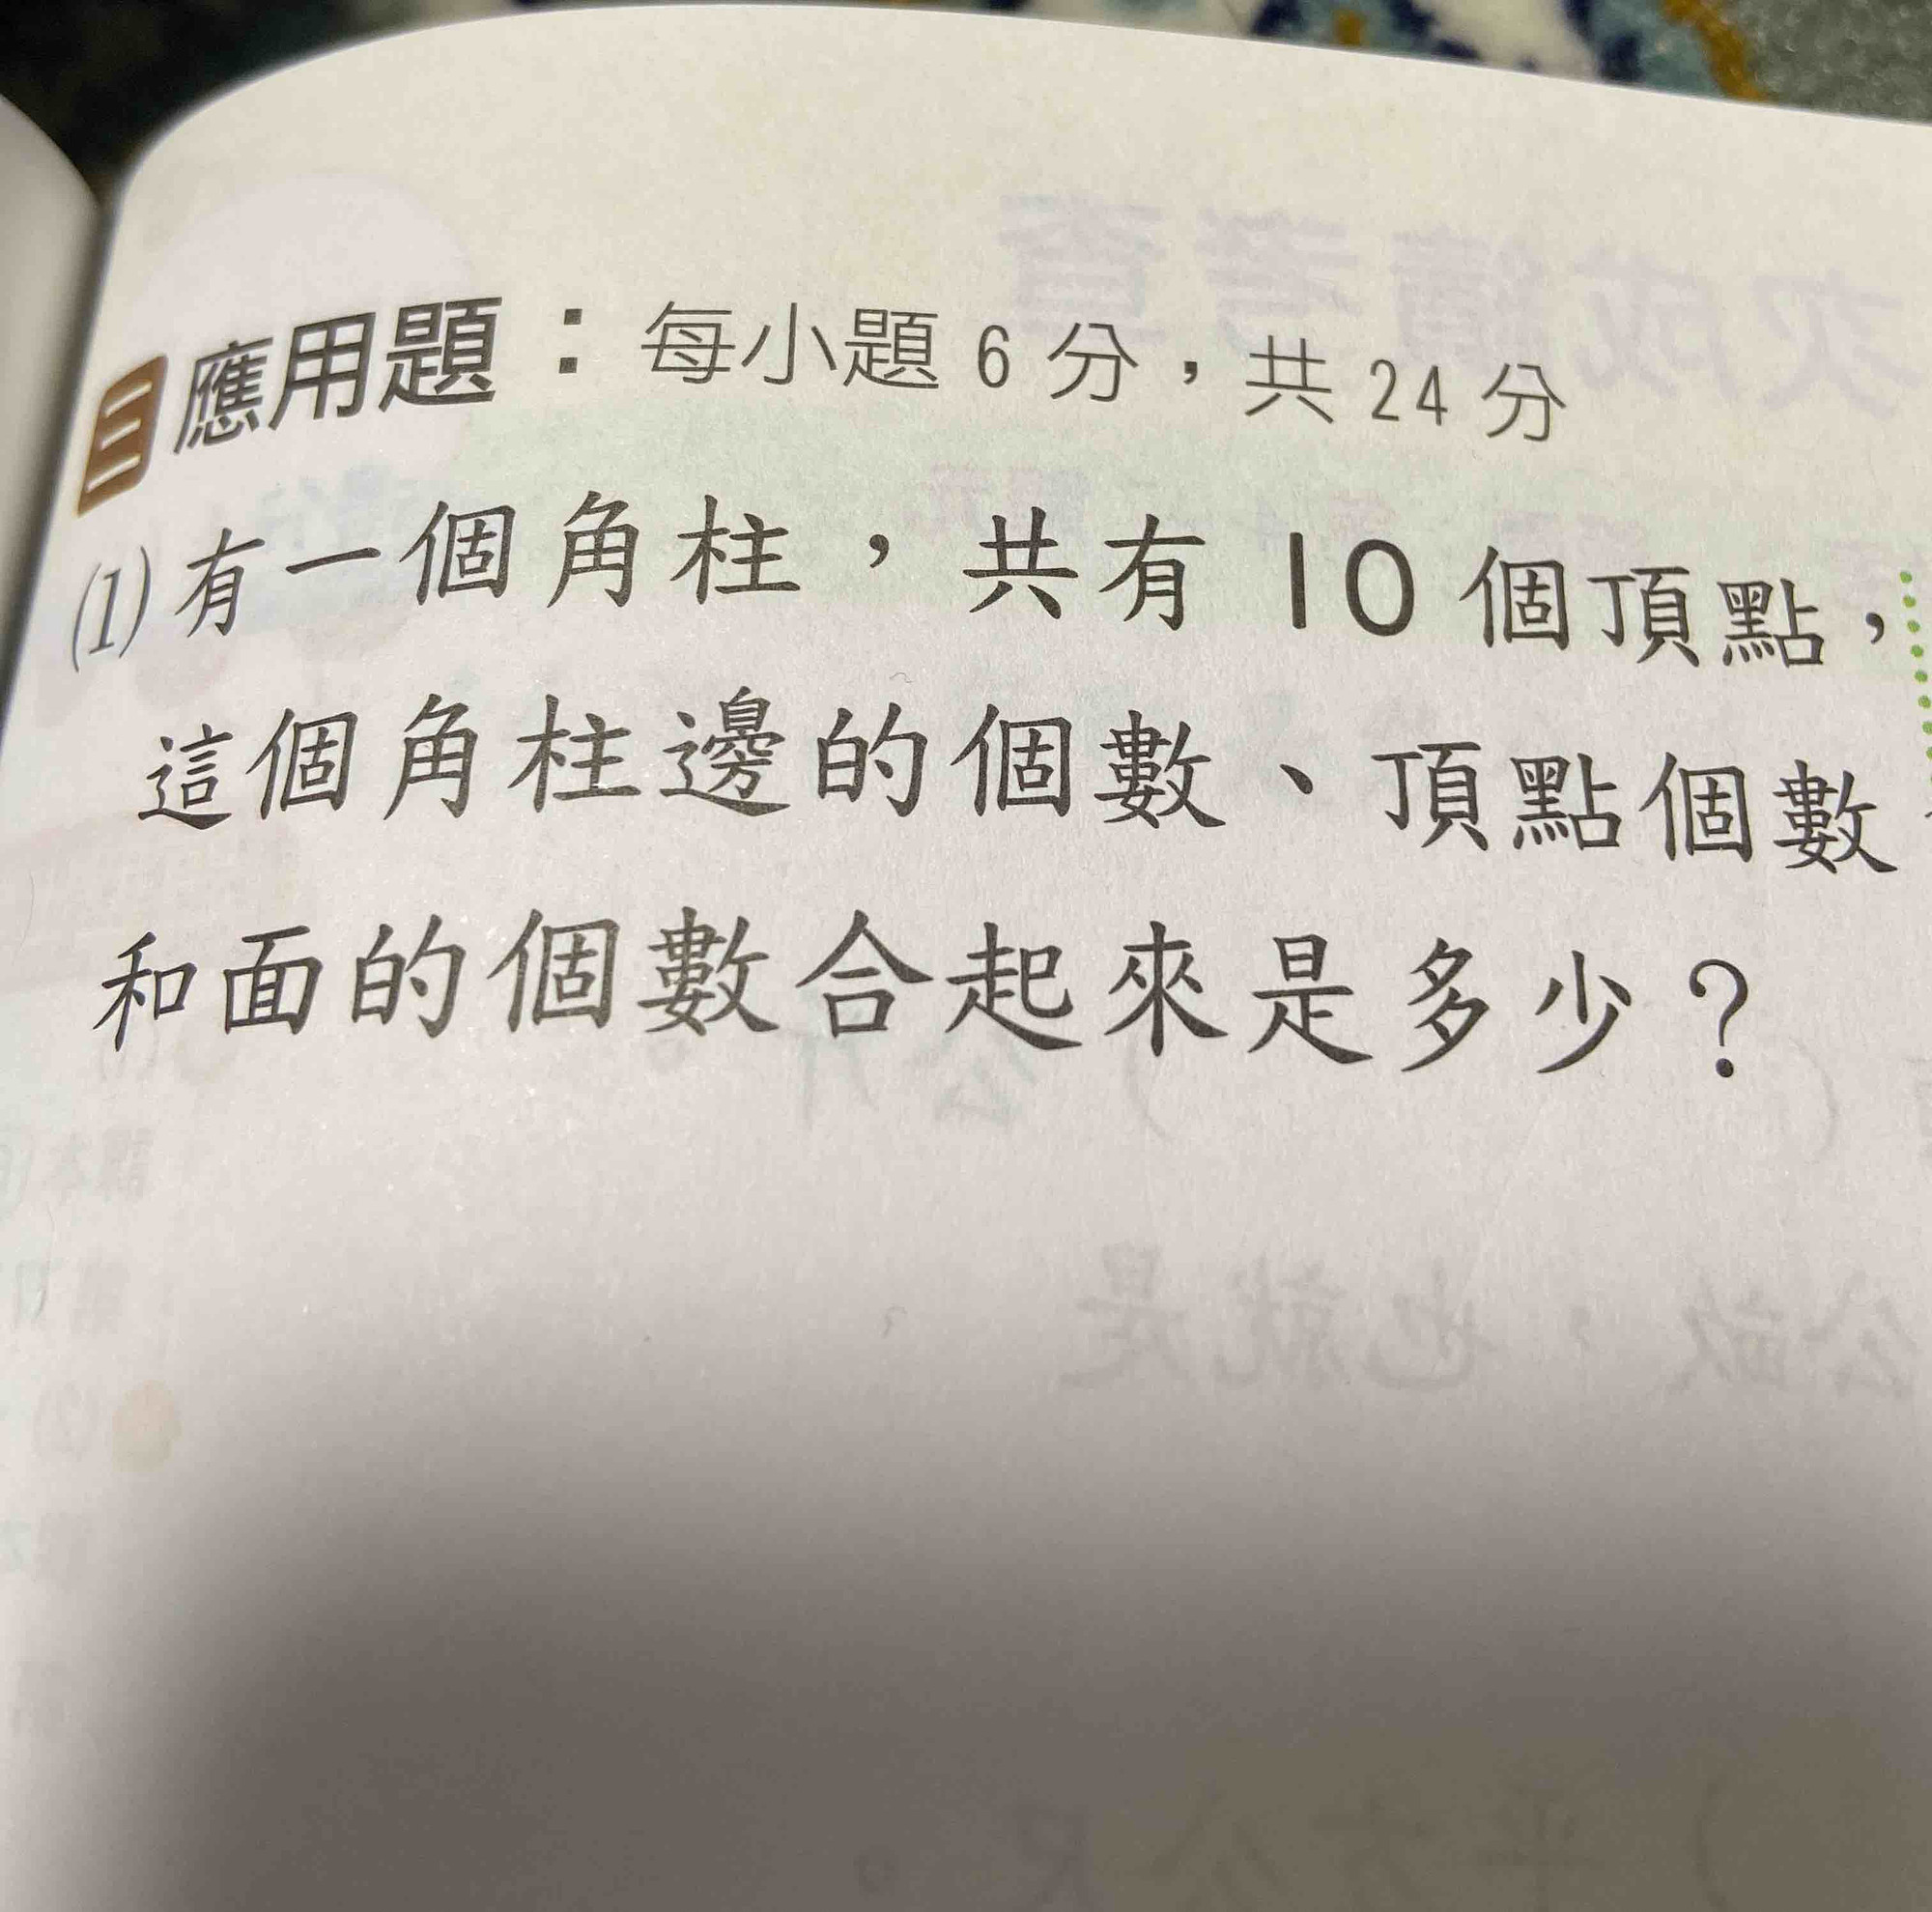 三 應用題：每小題 6 分，共 24 分
(1) 有一個角柱，共有 10 個頂點，
這個角柱邊的個數、頂點個數
和面的個數合起來是多少？